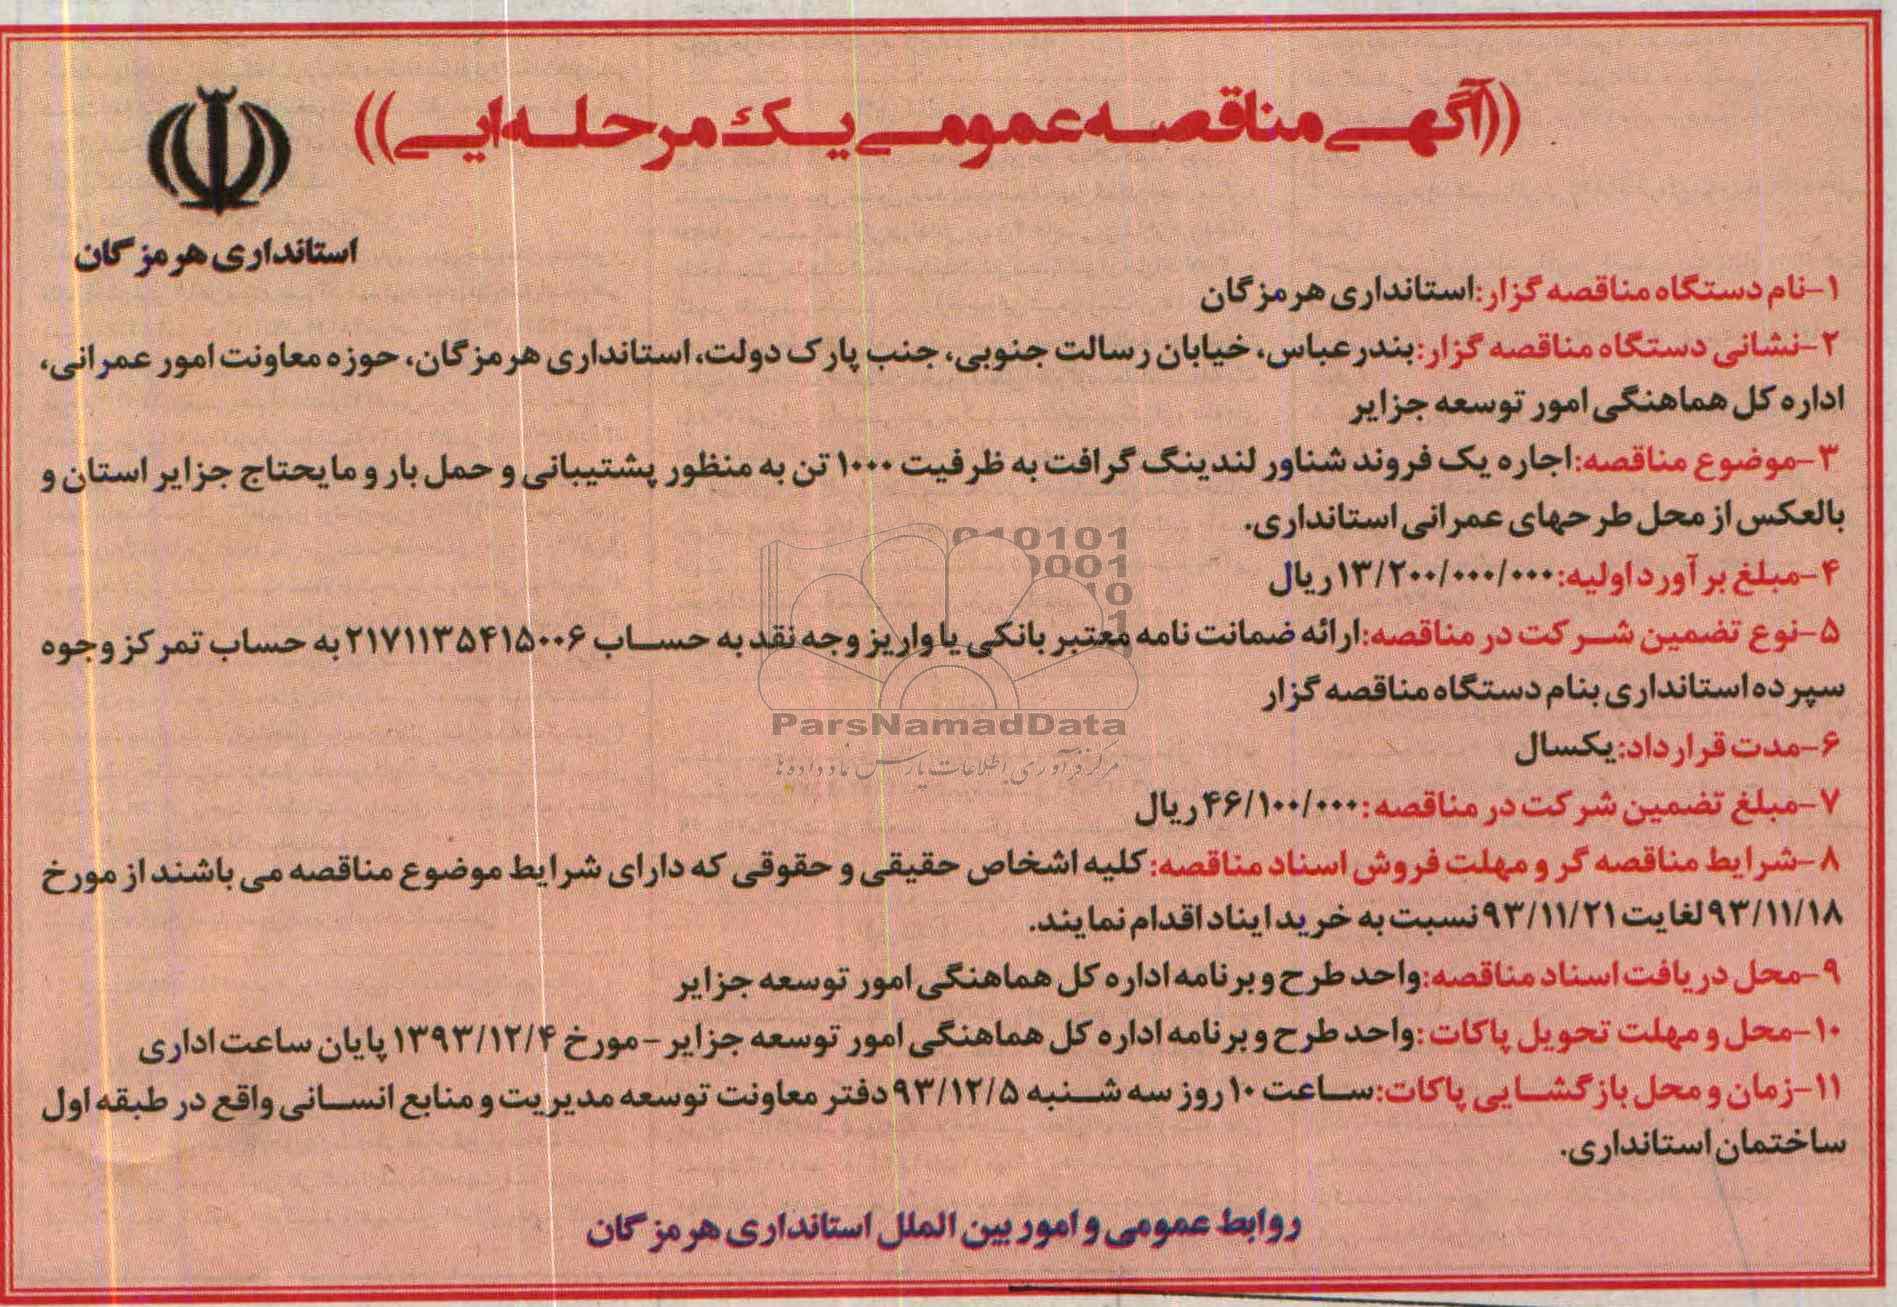 ((آگهی مناقصه عمومی یک مرحله ایی))
استانداری هرمزگان
۱-نام دستگاه مناقصه گزار:استانداری هرمزگان
۲-نشانی دستگاه مناقصه گزار:بندرعباس، خیابان رسالت جنوبی، جنب پارک دولت، استانداری هرمزگان، حوزه معاونت امور عمرانی،
اداره کل هماهنگی امور توسعه جزایر
۳-موضوع مناقصه:اجاره یک فروند شناور لندینگ گرافت به ظرفیت ۱۰۰۰ تن به منظور پشتیبانی و حمل بار و مایحتاج جزایر استان و
بالعکس از محل طرحهای عمرانی استانداری.
۴-مبلغ برآورد اولیه:۱۳/۲۰۰/۰۰۰/۰۰۰ ریال
۵-نوع تضمین شرکت در مناقصه:ارائه ضمانت نامه معتبر بانکی یا واریز وجه نقد به حساب ۲۱۷۱۱۳۵۴۱۵۰۰۶ به حساب تمرکز وجوه
سپرده استانداری بنام دستگاه مناقصه گزار
۶-مدت قرارداد:یکسال
۷-مبلغ تضمین شرکت در مناقصه:۴۶/۱۰۰/۰۰۰ ریال
۸-شرایط مناقصه گر و مهلت فروش اسناد مناقصه:کلیه اشخاص حقیقی و حقوقی که دارای شرایط موضوع مناقصه می باشند از مورخ
۹۳/۱۱/۱۸ لغایت ۹۳/۱۱/۲۱ نسبت به خرید ایناد اقدام نمایند.
۹-محل دریافت اسناد مناقصه:واحد طرح و برنامه اداره کل هماهنگی امور توسعه جزایر
۱۰-محل و مهلت تحویل پاکات:واحد طرح و برنامه اداره کل هماهنگی امور توسعه جزایر - مورخ ۱۳۹۳/۱۲/۴ پایان ساعت اداری
۱۱-زمان و محل بازگشایی پاکات:ساعت ۱۰ روز سه شنبه ۹۳/۱۲/۵ دفتر معاونت توسعه مدیریت و منابع انسانی واقع در طبقه اول
ساختمان استانداری.
روابط عمومی و امور بین الملل استانداری هرمزگان
010101
0001
10
1
ParsNamadData
مرکز فرآوری اطلاعات پارس نماد داده ها